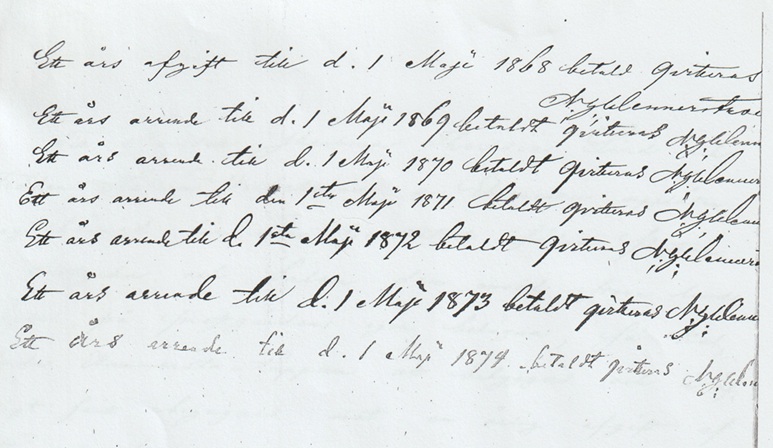 Ett års afgift till d. 1 Maji 1868 betald qvitteras
Ett års arrende till d. 1 Maji 1869 betaldt qvitteras
Ett års arrende till d. 1 Maji 1870 betaldt qvitteras
Ett års arrende till den 1sta Maji 1871 betaldt qvitteras
Ett års arrende till d. 1sta Maji 1872 betaldt qvitteras
Ett års arrende till d. 1 Maji 1873 betaldt qvitteras
Ett års arrende till d. 1 Maji 1874 betaldt qvitteras